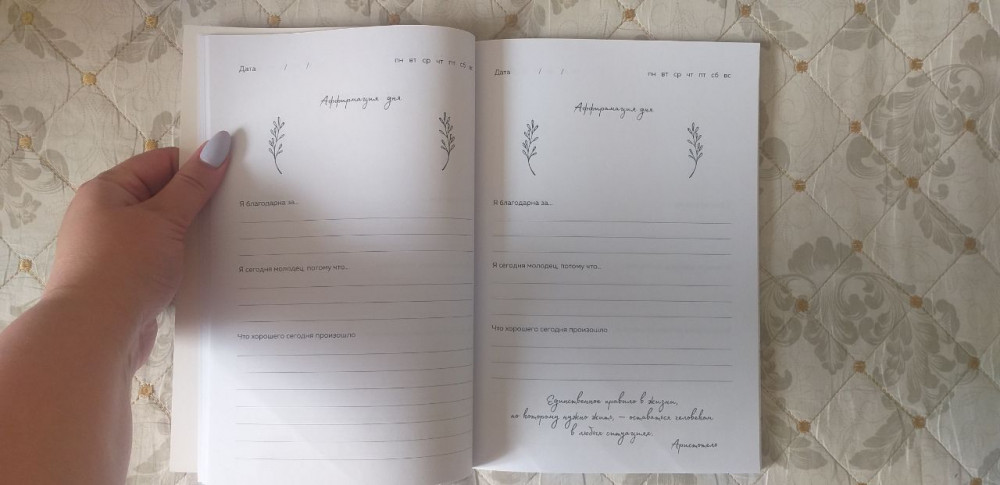 Дата / /
пн вт ср чт пт сб в
Аффирмация дня
Я благодарна за...
Я сегодня молодец, потому что...
Что хорошего сегодня произошло
Дата / /
пн вт ср чт пт сб вс
Аффирмация дня
Я благодарна за...
Я сегодня молодец, потому что...
Что хорошего сегодня произошло
Единственное правило в жизни,
по которому нужно жить, — оставаться человеком
в любых ситуациях.
Аристотель